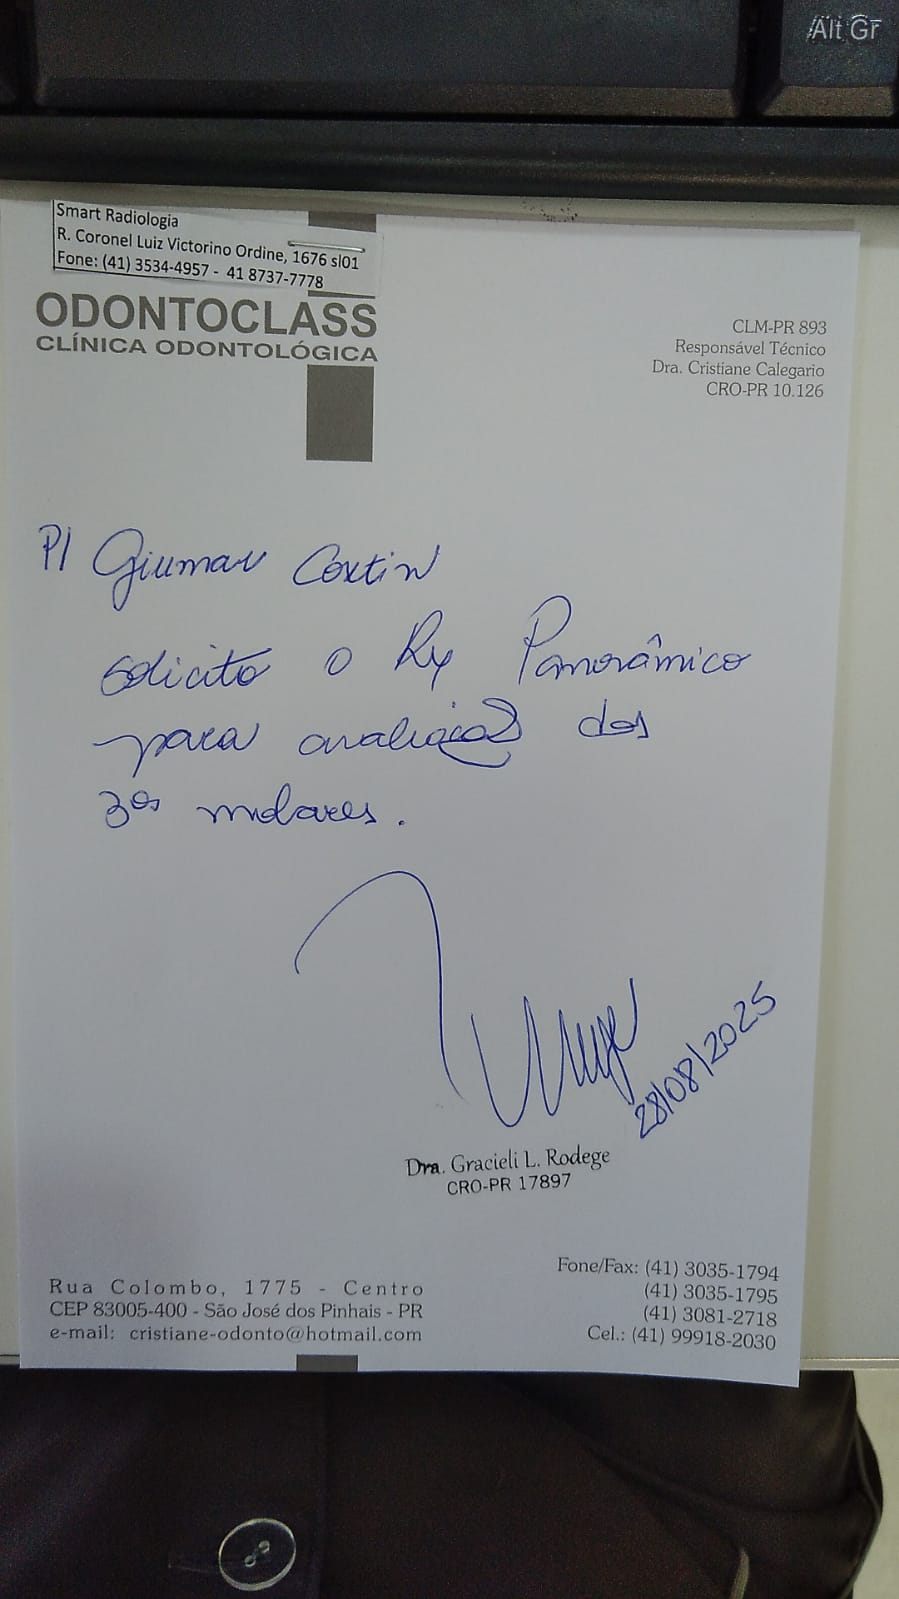 Alt Gr
Smart Radiologia
R. Coronel Luiz Victorino Ordine, 1676 sl01
Fone: (41) 3534-4957 - 41 8737-7778
ODONTOCLASS
CLÍNICA ODONTOLÓGICA
CLM-PR 893
Responsável Técnico
Dra. Cristiane Calegario
CRO-PR 10.126
P/ Giumar
solicito o Rx Panorâmico
para avaliação dos
3ºs molares.
28/08/2025
Dra. Gracieli L. Rodege
CRO-PR 17897
Rua Colombo, 1775 - Centro
CEP 83005-400 - São José dos Pinhais - PR
e-mail: cristiane-odonto@hotmail.com
Fone/Fax: (41) 3035-1794
(41) 3035-1795
(41) 3081-2718
Cel.: (41) 99918-2030